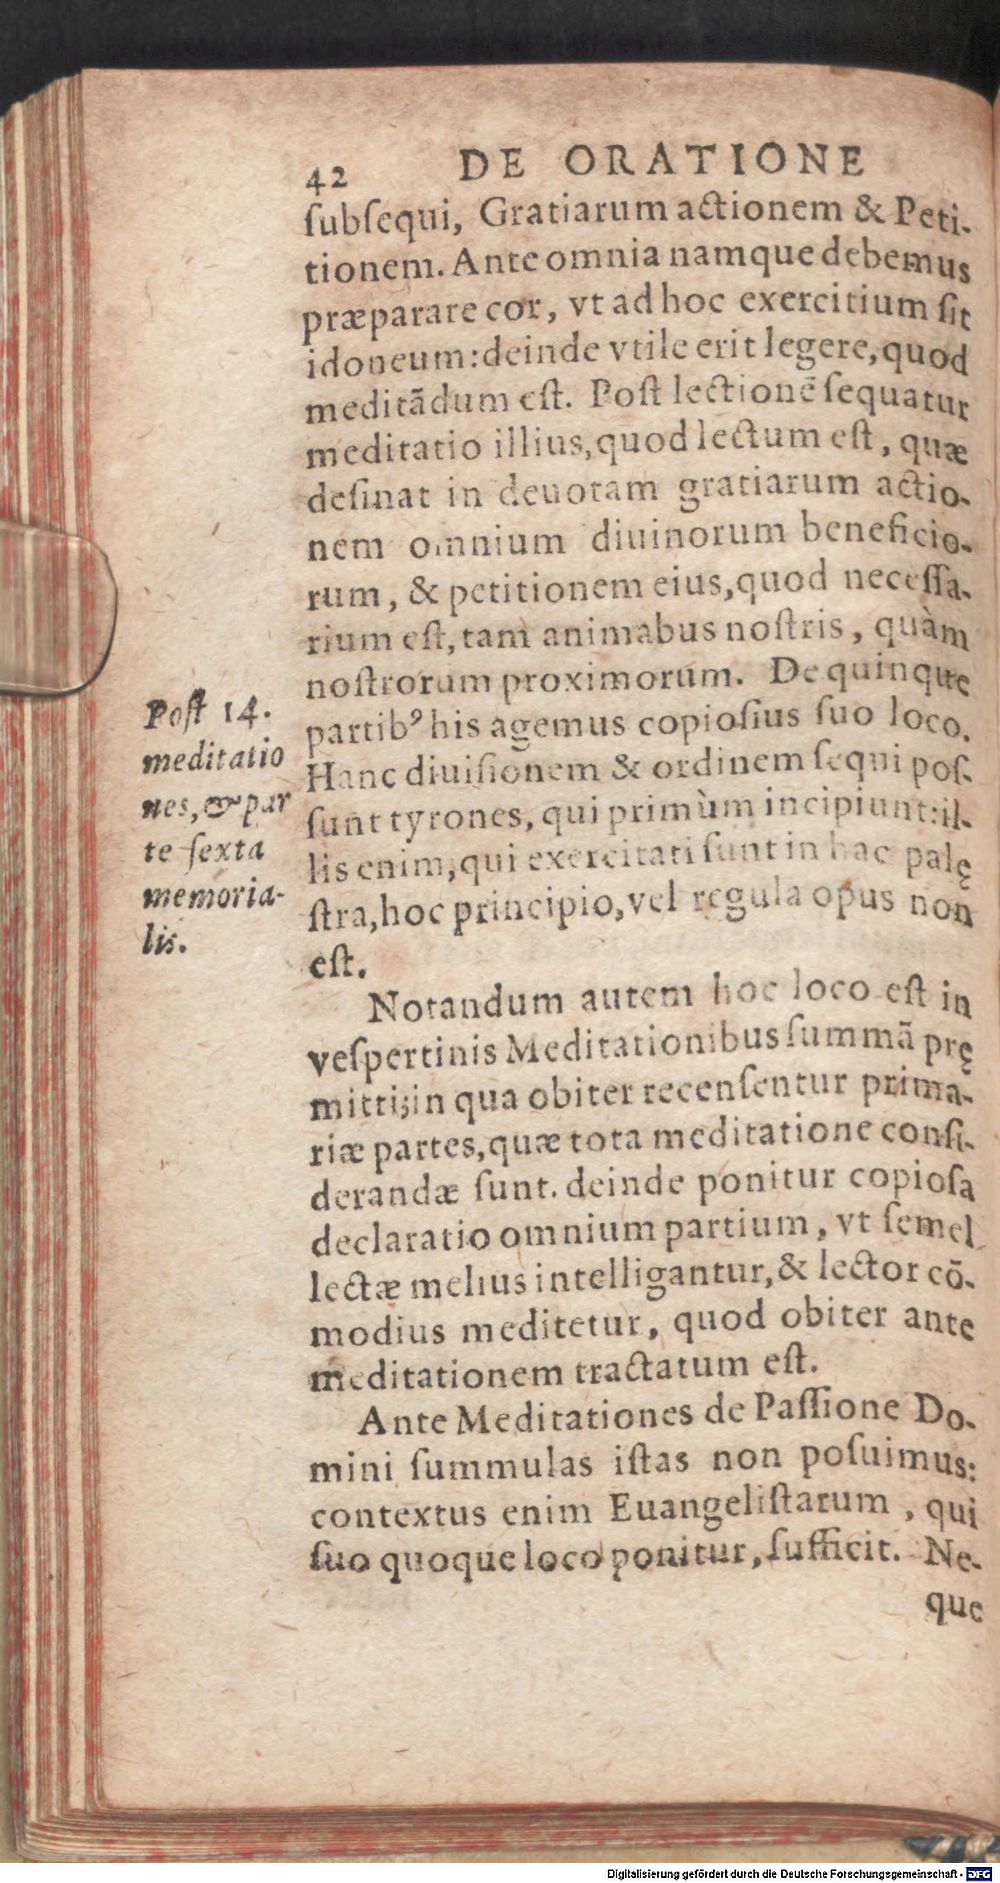 42 DE ORATIONE
ſubſequi, Gratiarum actionem & Peti-
tionem. Ante omnia namque debemus
præparare cor, vt ad hoc exercitium ſit
idoneum: deinde vtile erit legere, quod
meditãdum eſt. Poſt lectionẽ ſequatur
meditatio illius, quod lectum eſt, quæ
deſinat in deuotam gratiarum actio-
nem omnium diuinorum beneficio-
rum, & petitionem eius, quod neceſſa-
rium eſt, tam animabus noſtris, quàm
noſtrorum proximorum. De quinque
partibꝰ his agemus copioſius ſuo loco.
Hanc diuiſionem & ordinem ſequi poſ-
ſunt tyrones, qui primùm incipiunt: il-
lis enim, qui exercitati ſunt in hac palę
ſtra, hoc principio, vel regula opus non
eſt.
Poſt 14.
meditatio
nes, & par
te ſexta
memoria-
lis.
Notandum autem hoc loco eſt in
veſpertinis Meditationibus ſummã prę
mitti; in qua obiter recenſentur prima-
riæ partes, quæ tota meditatione conſi-
derandæ ſunt. deinde ponitur copioſa
declaratio omnium partium, vt ſemel
lectæ melius intelligantur, & lector cõ-
modius meditetur, quod obiter ante
meditationem tractatum eſt.
Ante Meditationes de Paſſione Do-
mini ſummulas iſtas non poſuimus:
contextus enim Euangeliſtarum, qui
ſuo quoque loco ponitur, ſufficit. Ne-
que
Digitalisierung gefördert durch die Deutsche Forschungsgemeinschaft - DFG